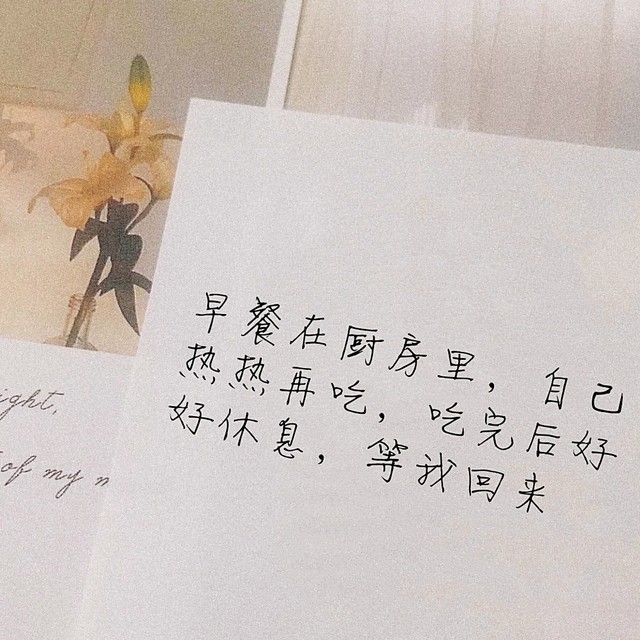 早餐在厨房里，自己
热热再吃，吃完后好
好休息，等我回来
ight,
of my